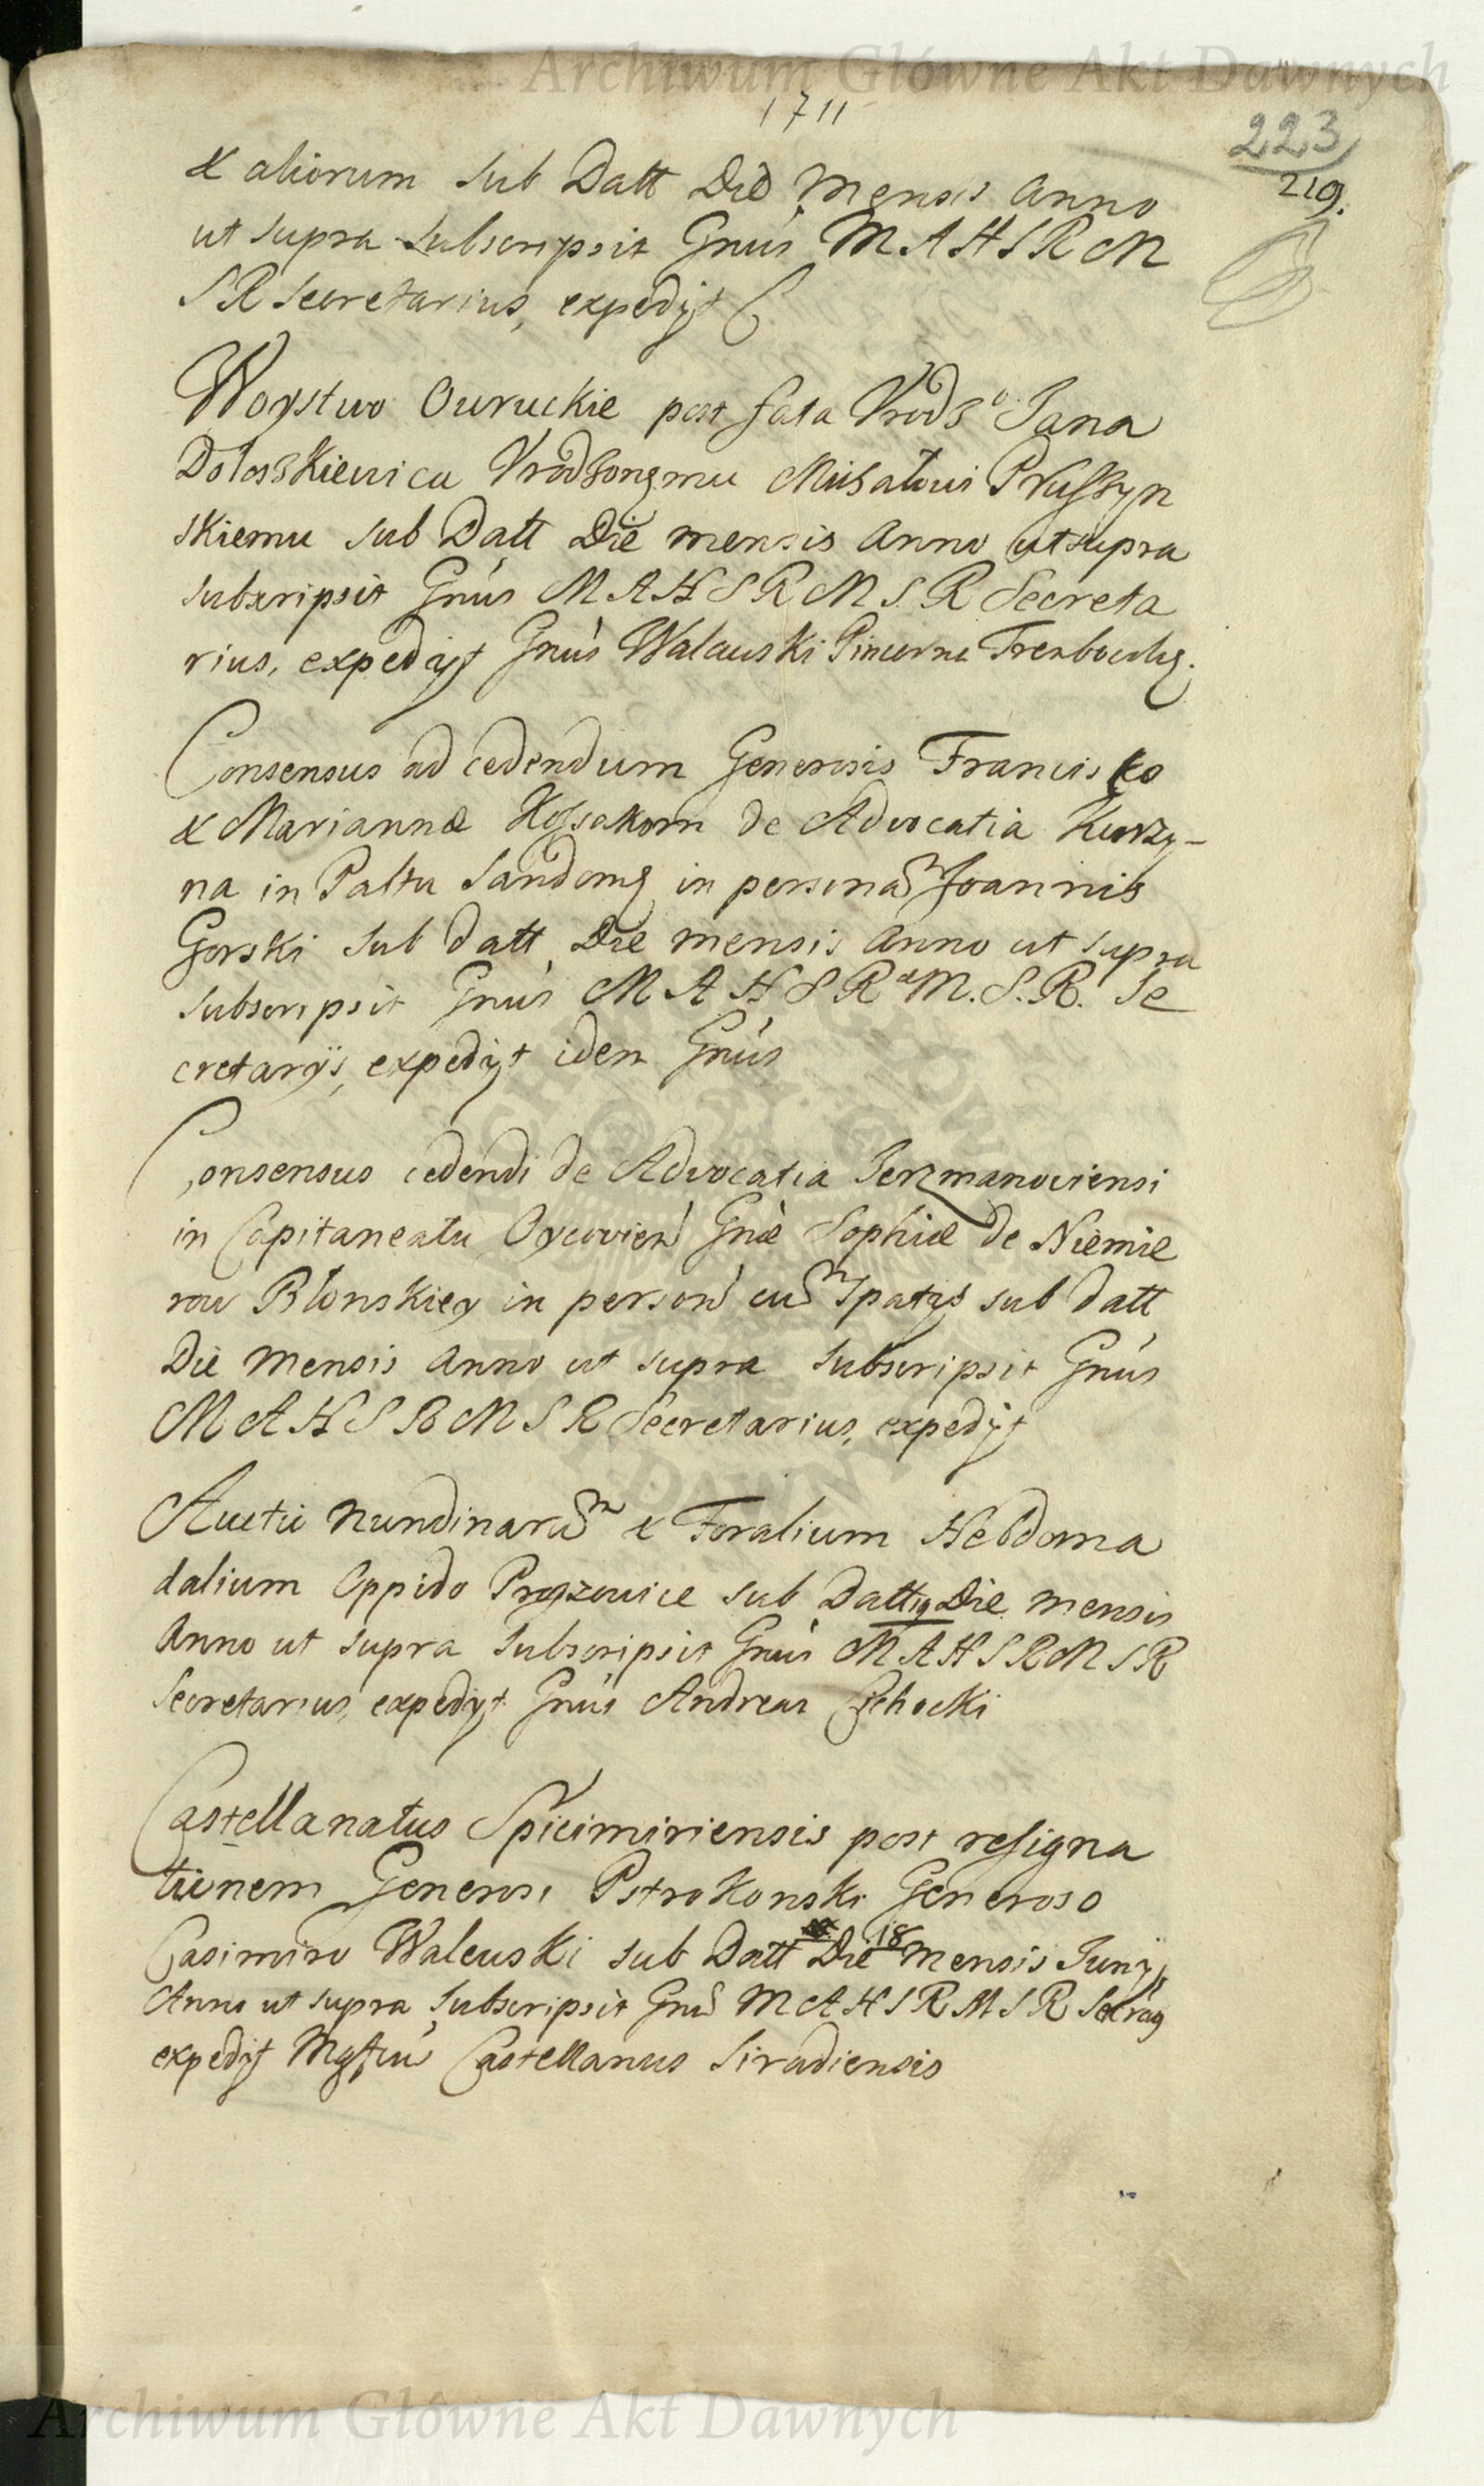 Archiwum Główne Akt Dawnych
1711
223
219.
& aliorum sub Datt Die Mensis Anno
ut supra subscripsit Gnus M A H S R M
S R Secretarius, expedyt
Woystwo Owruckie post fata Vrodz° Jana
Vrodzonemu Prussyn
skiemu sub Datt Die mensis Anno ut supra
subscripsit Gnus M A H S R M S R Secreta
rius, expedyt Gnus Walewski Pincerna
Consensus ad cedendum Generosis Francisko
& Mariannæ Kossakom de Advocatia Kurzy-
na in Palttu Sandomg in personam Joannis
Gorski sub datt Die mensis Anno ut supra
subscripsit Gnus M A H S R M. S. R. Se
cretarys, expedyt idem Gnus
Consensus cedendi de Advocatia Jerzmanoviensi
in Capitaneatu Oycovien Gnæ Sophiæ de Niemie
row Blonskiey in person sub datt
Die mensis Anno ut supra subscripsit Gnus
M A H S R M S R Secretarius, expedyt
Nundinarum & Foralium Hebdoma
dalium Oppido Proszovice sub Datt Die mensis
Anno ut supra subscripsit Gnus M A H S R M S R
Secretarius, expedyt Gnus Andreas Cichocki
Castellanatus Spicimiriensis post resigna
tionem Generosi Pstrokonski Generoso
Casimiro Walewski sub Datt Die 18 Mensis Juny
Anno ut supra subscripsit Gnus M A H S R M S R
expedyt Castellanus Siradiensis
Archiwum Główne Akt Dawnych